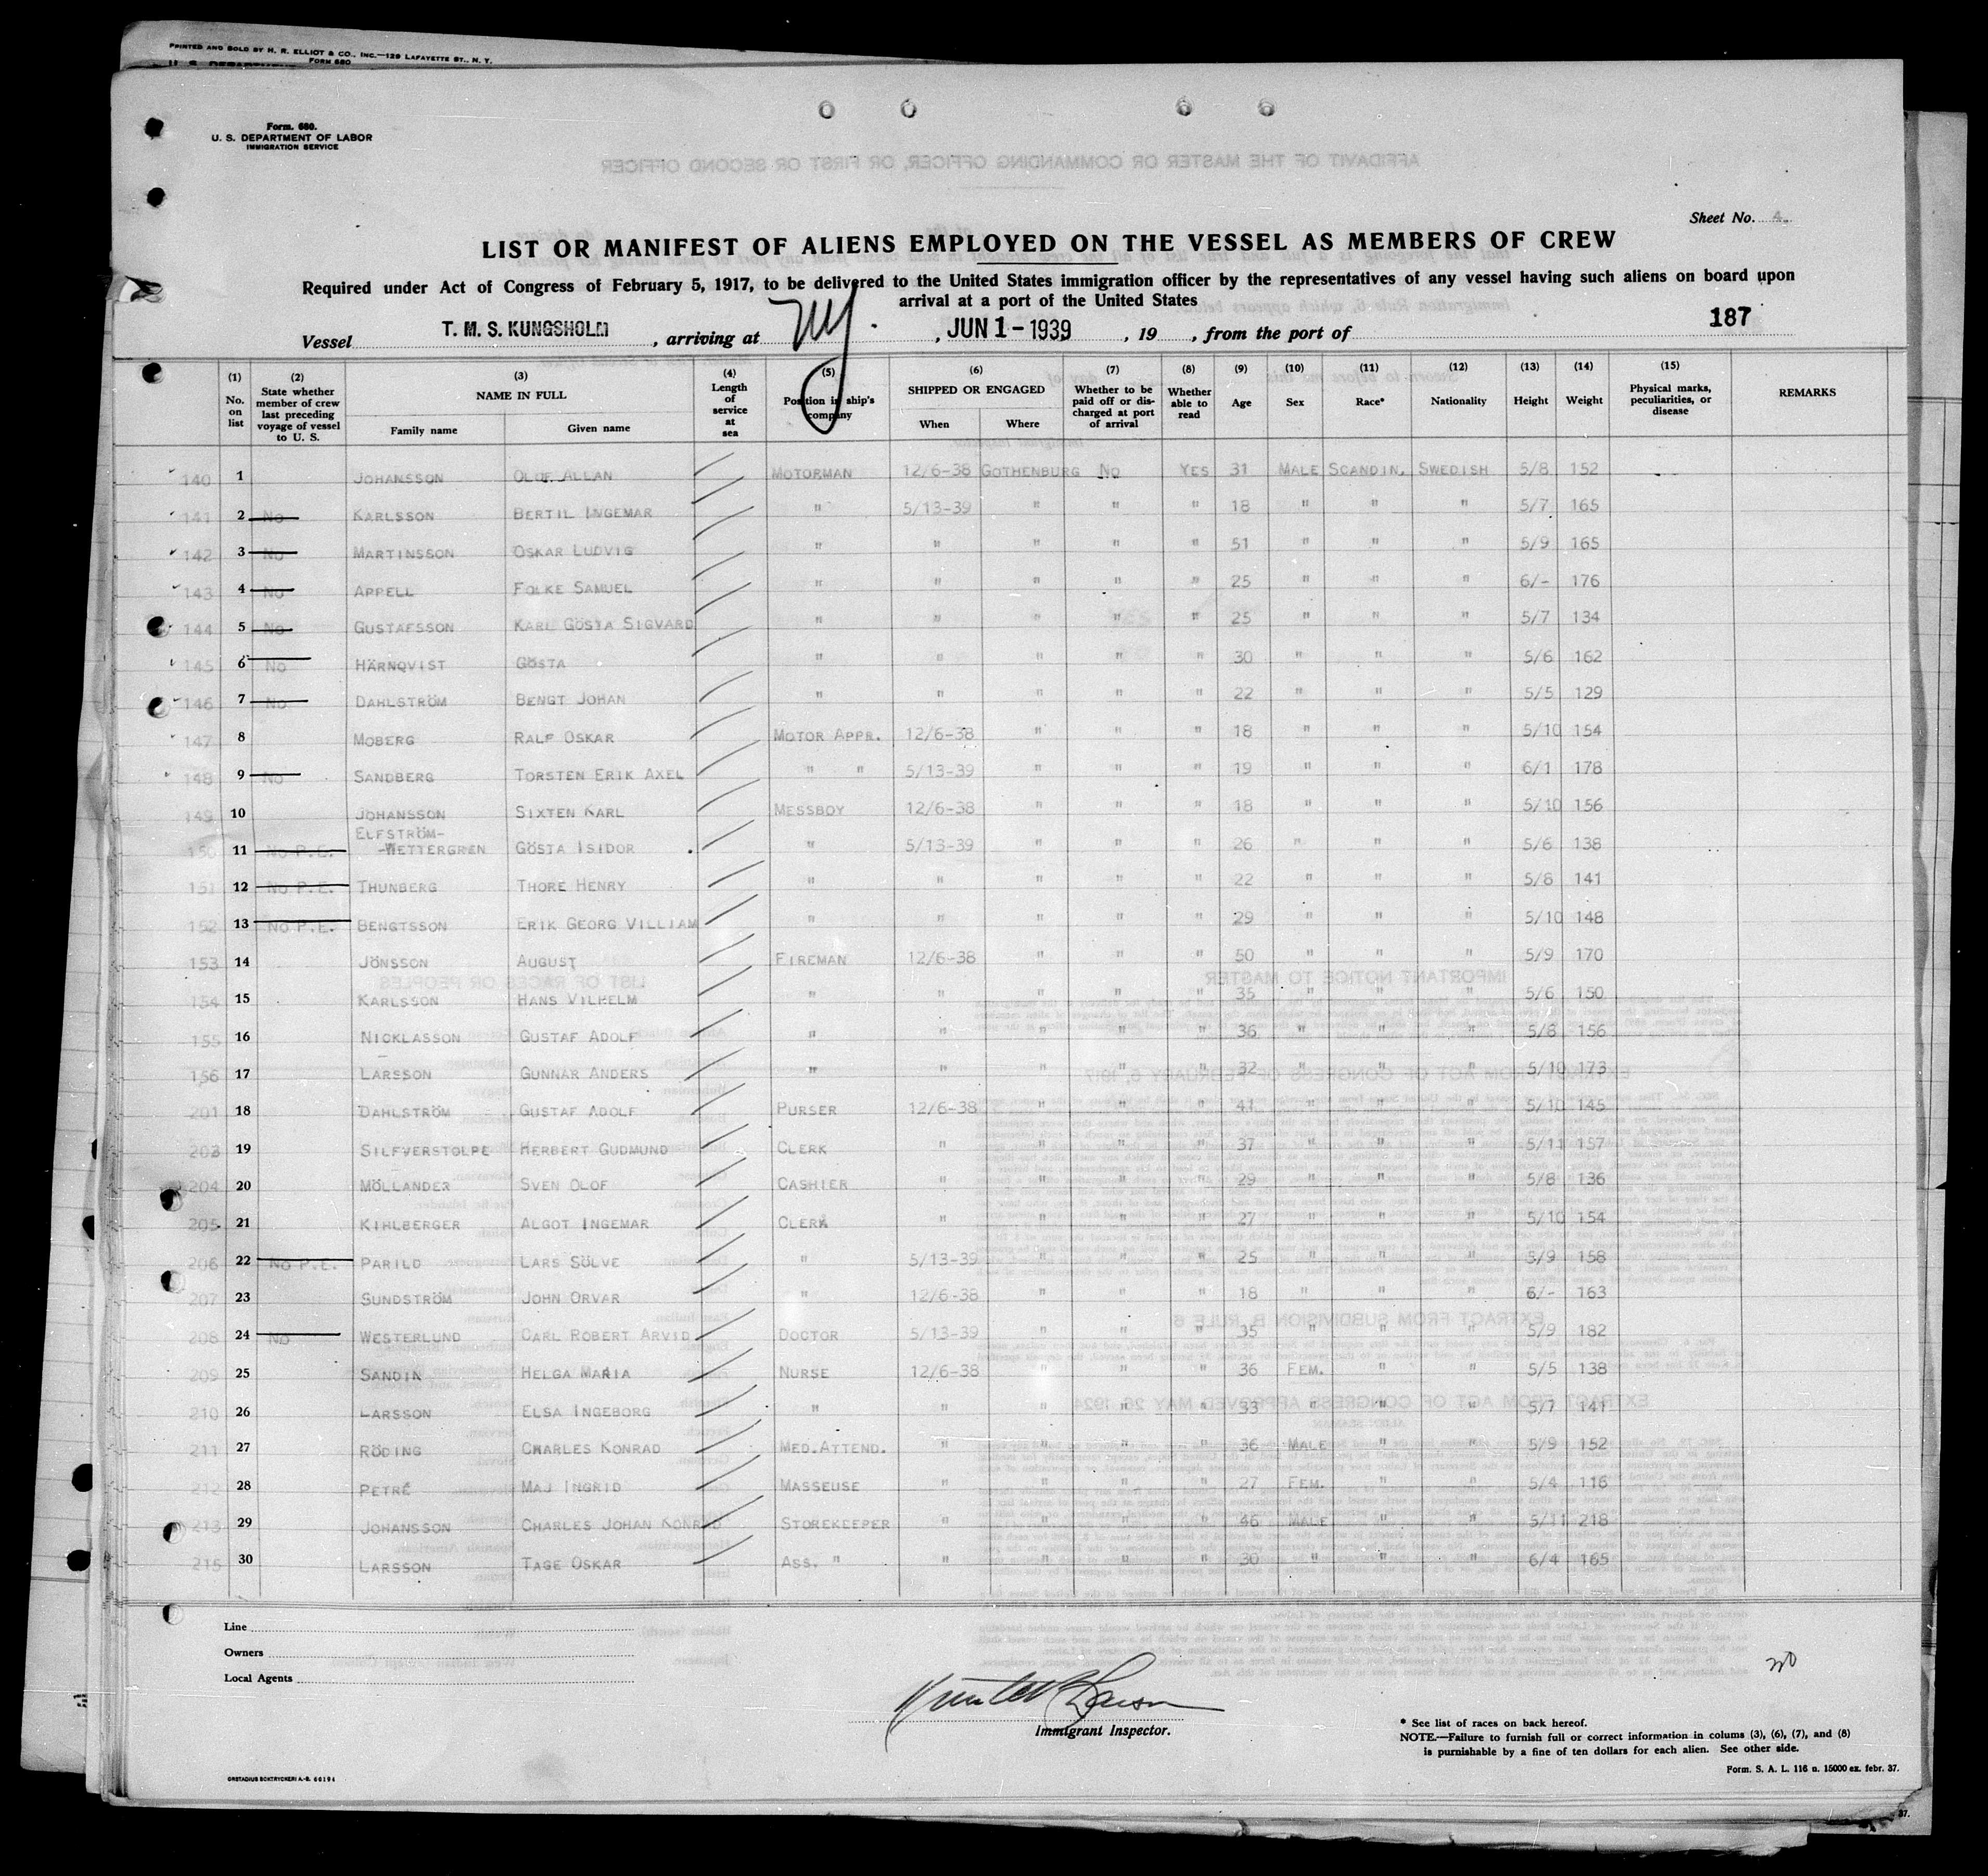 PRINTED AND SOLD BY H. R. ELLIOT & CO., INC.—129 LAFAYETTE ST., N. Y.
FORM 680
Form. 680.
U. S. DEPARTMENT OF LABOR
IMMIGRATION SERVICE
Sheet No. 4.
LIST OR MANIFEST OF ALIENS EMPLOYED ON THE VESSEL AS MEMBERS OF CREW
Required under Act of Congress of February 5, 1917, to be delivered to the United States immigration officer by the representatives of any vessel having such aliens on board upon
arrival at a port of the United States
187
Vessel T. M. S. KUNGSHOLM, arriving at NY., JUN 1 - 1939, 19 , from the port of
(1) No. on list (2) State whether member of crew last preceding voyage of vessel to U. S. (3) NAME IN FULL Family name Given name (4) Length of service at sea (5) Position in ship's company (6) SHIPPED OR ENGAGED When Where (7) Whether to be paid off or discharged at port of arrival (8) Whether able to read (9) Age (10) Sex (11) Race* (12) Nationality (13) Height (14) Weight (15) Physical marks, peculiarities, or disease REMARKS
140 1 JOHANSSON OLOF ALLAN MOTORMAN 12/6-38 GOTHENBURG NO YES 31 MALE SCANDIN. SWEDISH 5/8 152
141 2 No KARLSSON BERTIL INGEMAR " 5/13-39 " " " 18 " " " 5/7 165
142 3 No MARTINSSON OSKAR LUDVIG " " " " " 51 " " " 5/9 165
143 4 No APPELL FOLKE SAMUEL " " " " " 25 " " " 6/- 176
144 5 No GUSTAFSSON KARL GÖSTA SIGVARD " " " " " 25 " " " 5/7 134
145 6 No HÄRNQVIST GÖSTA " " " " " 30 " " " 5/6 162
146 7 No DAHLSTRÖM BENGT JOHAN " " " " " 22 " " " 5/5 129
147 8 MOBERG RALF OSKAR MOTOR APPR. 12/6-38 " " " 18 " " " 5/10 154
148 9 No SANDBERG TORSTEN ERIK AXEL " " 5/13-39 " " " 19 " " " 6/1 178
149 10 JOHANSSON SIXTEN KARL MESSBOY 12/6-38 " " " 18 " " " 5/10 156
150 11 No P.E. ELFSTRÖM-
-WETTERGREN GÖSTA ISIDOR " 5/13-39 " " " 26 " " " 5/6 138
151 12 No P.E. THUNBERG THORE HENRY " " " " " 22 " " " 5/8 141
152 13 No P.E. BENGTSSON ERIK GEORG VILLIAM " " " " " 29 " " " 5/10 148
153 14 JÖNSSON AUGUST FIREMAN 12/6-38 " " " 50 " " " 5/9 170
154 15 KARLSSON HANS VILHELM " " " " " 35 " " " 5/6 150
155 16 NICKLASSON GUSTAF ADOLF " " " " " 36 " " " 5/8 156
156 17 LARSSON GUNNAR ANDERS " " " " " 32 " " " 5/10 173
201 18 DAHLSTRÖM GUSTAF ADOLF PURSER 12/6-38 " " " 41 " " " 5/10 145
203 19 SILFVERSTOLPE HERBERT GUDMUND CLERK " " " " 37 " " " 5/11 157
204 20 MÖLLANDER SVEN OLOF CASHIER " " " " 29 " " " 5/8 136
205 21 KIHLBERGER ALGOT INGEMAR CLERK " " " " 27 " " " 5/10 154
206 22 No P.E. PARILD LARS SÖLVE " 5/13-39 " " " 25 " " " 5/9 158
207 23 SUNDSTRÖM JOHN ORVAR " 12/6-38 " " " 18 " " " 6/- 163
208 24 No WESTERLUND CARL ROBERT ARVID DOCTOR 5/13-39 " " " 35 " " " 5/9 182
209 25 SANDIN HELGA MARIA NURSE 12/6-38 " " " 36 FEM. " " 5/5 138
210 26 LARSSON ELSA INGEBORG " " " " " 33 " " " 5/7 141
211 27 RÖDING CHARLES KONRAD MED.ATTEND. " " " " 36 MALE " " 5/9 152
212 28 PETRÉ MAJ INGRID MASSEUSE " " " " 27 FEM. " " 5/4 116
213 29 JOHANSSON CHARLES JOHAN KONRAD STOREKEEPER " " " " 46 MALE " " 5/11 218
215 30 LARSSON TAGE OSKAR ASS. " " " " " 30 " " " 6/4 165
Line
Owners
Local Agents
Immigrant Inspector.
* See list of races on back hereof.
NOTE.—Failure to furnish full or correct information in colums (3), (6), (7), and (8)
is punishable by a fine of ten dollars for each alien. See other side.
Form. S. A. L. 116 n. 15000 ex. febr. 37.
ORSTADIUS BOKTRYCKERI A.-B. 66194
37.